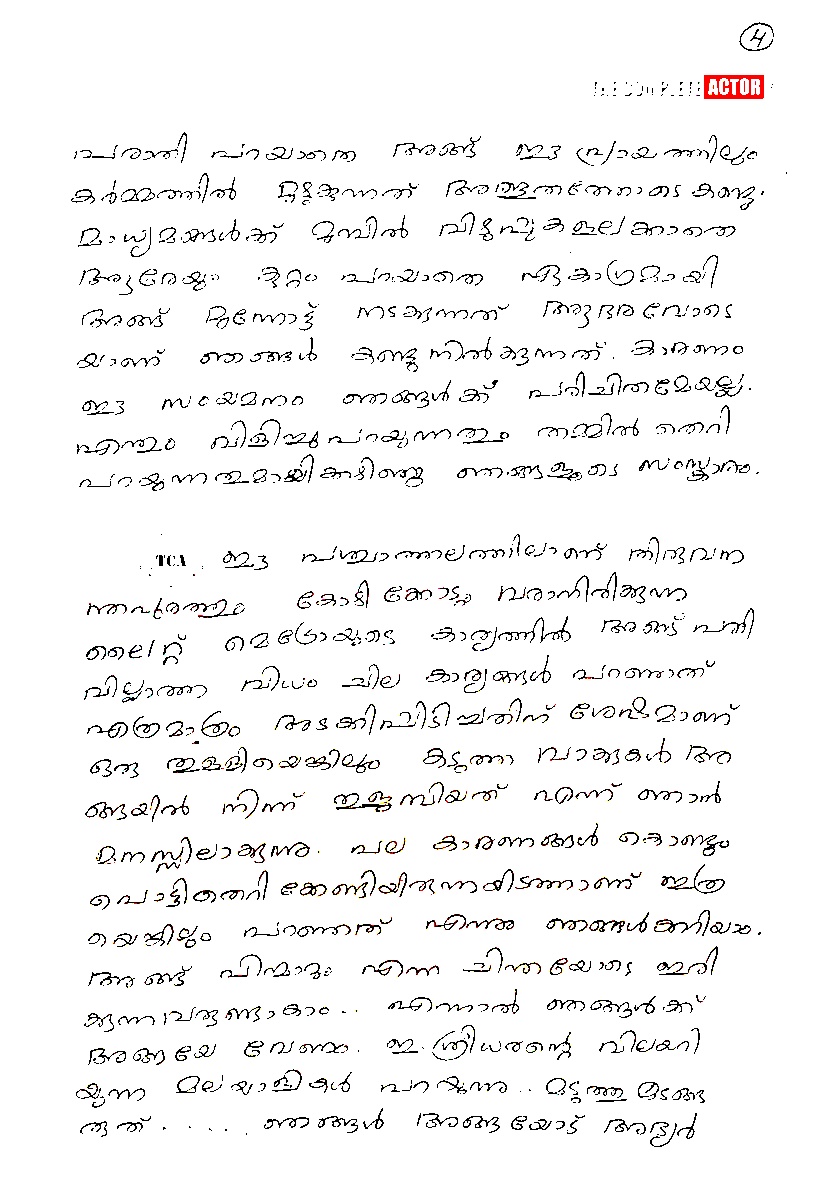 4
THE COMPLETE ACTOR
പരാതി പറയാതെ അങ്ങ് ഈ പ്രായത്തിലും
കർമ്മത്തിൽ മുഴുകുന്നത് അത്ഭുതത്തോടെ കണ്ടു.
മാധ്യമങ്ങൾക്ക് മുമ്പിൽ വിഴുപ്പുകളലക്കാതെ
ആരേയും കുറ്റം പറയാതെ ഏകാഗ്രമായി
അങ്ങ് മുന്നോട്ട് നടക്കുന്നത് ആദരവോടെ
യാണ് ഞങ്ങൾ കണ്ടുനിൽക്കുന്നത്. കാരണം
ഈ സംയമനം ഞങ്ങൾക്ക് പരിചിതമേയല്ല.
എന്തും വിളിച്ചുപറയുന്നതും തമ്മിൽ തെറി
പറയുന്നതുമായിക്കഴിഞ്ഞു ഞങ്ങളുടെ സംസ്കാരം.
TCA ഈ പശ്ചാത്തലത്തിലാണ് തിരുവന
ന്തപുരത്തും കോഴിക്കോട്ടും വരാനിരിക്കുന്ന
ലൈറ്റ് മെട്രോയുടെ കാര്യത്തിൽ അങ്ങ് പതി
വില്ലാത്ത വിധം ചില കാര്യങ്ങൾ പറഞ്ഞത്
എത്രമാത്രം അടക്കിപ്പിടിച്ചതിന് ശേഷമാണ്
ഒരു തുള്ളിയെങ്കിലും കടുത്ത വാക്കുകൾ അ
ങ്ങയിൽ നിന്ന് തുളുമ്പിയത് എന്ന് ഞാൻ
മനസ്സിലാക്കുന്നു. പല കാരണങ്ങൾ കൊണ്ടും
പൊട്ടിതെറിക്കേണ്ടിയിരുന്നയിടത്താണ് ഇത്ര
യെങ്കിലും പറഞ്ഞത് എന്നു ഞങ്ങൾക്കറിയാം.
അങ്ങ് പിന്മാറും എന്ന ചിന്തയോടെ ഇരി
ക്കുന്നവരുണ്ടാകാം.. എന്നാൽ ഞങ്ങൾക്ക്
അങ്ങയേ വേണം. ഇ. ശ്രീധരന്റെ വിലയറി
യുന്ന മലയാളികൾ പറയുന്നു.. മടുത്തു മടങ്ങ
രുത് ...... ഞങ്ങൾ അങ്ങയോട് അഭ്യർ